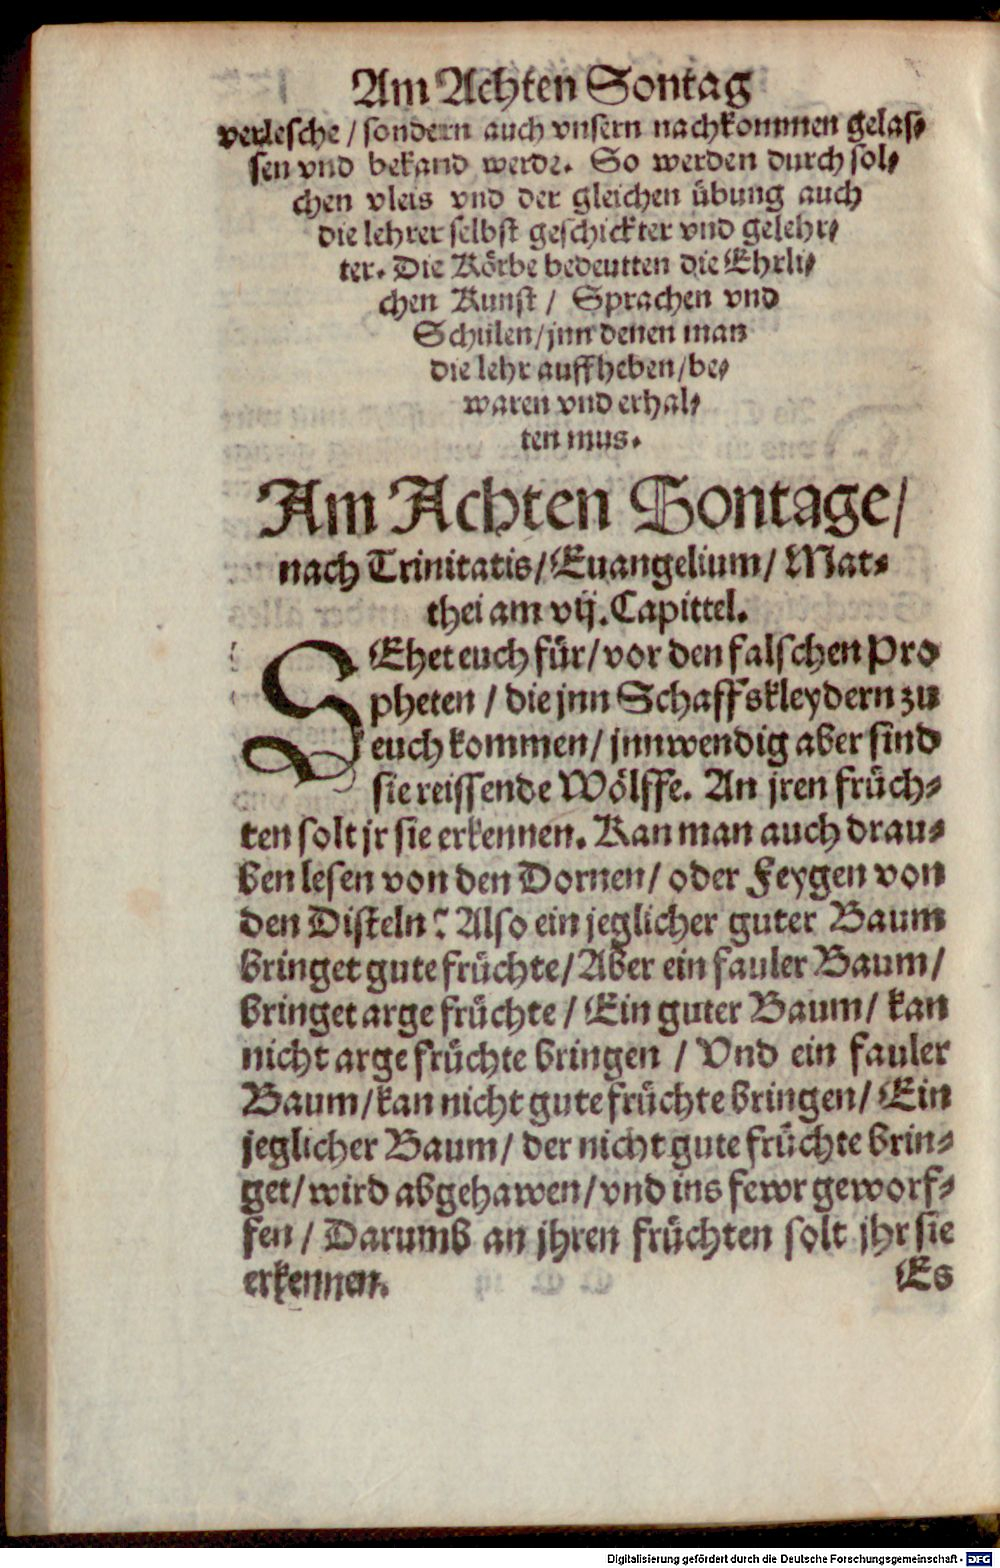 Am Achten Sontag
verlesche / sondern auch vnsern nachkommen gelas-
sen vnd bekand werde. So werden durch sol-
chen vleis vnd der gleichen übung auch
die lehrer selbst geschickter vnd gelehr-
ter. Die Körbe bedeutten die Ehrli-
chen Kunst / Sprachen vnd
Schulen / jnn denen man
die lehr auffheben / be-
waren vnd erhal-
ten mus.
Am Achten Sontage /
nach Trinitatis / Euangelium / Mat-
thei am vij. Capittel.
SEhet euch für / vor den falschen Pro
pheten / die jnn Schaffskleydern zu
euch kommen / jnnwendig aber sind
sie reissende Wölffe. An jren früch-
ten solt jr sie erkennen. Kan man auch drau-
ben lesen von den Dornen / oder Feygen von
den Disteln? Also ein jeglicher guter Baum
bringet gute früchte / Aber ein fauler Baum /
bringet arge früchte / Ein guter Baum / kan
nicht arge früchte bringen / Vnd ein fauler
Baum / kan nicht gute früchte bringen / Ein
jeglicher Baum / der nicht gute früchte brin-
get / wird abgehawen / vnd ins fewr geworf-
fen / Darumb an jhren früchten solt jhr sie
erkennen. Es
Digitalisierung gefördert durch die Deutsche Forschungsgemeinschaft - DFG